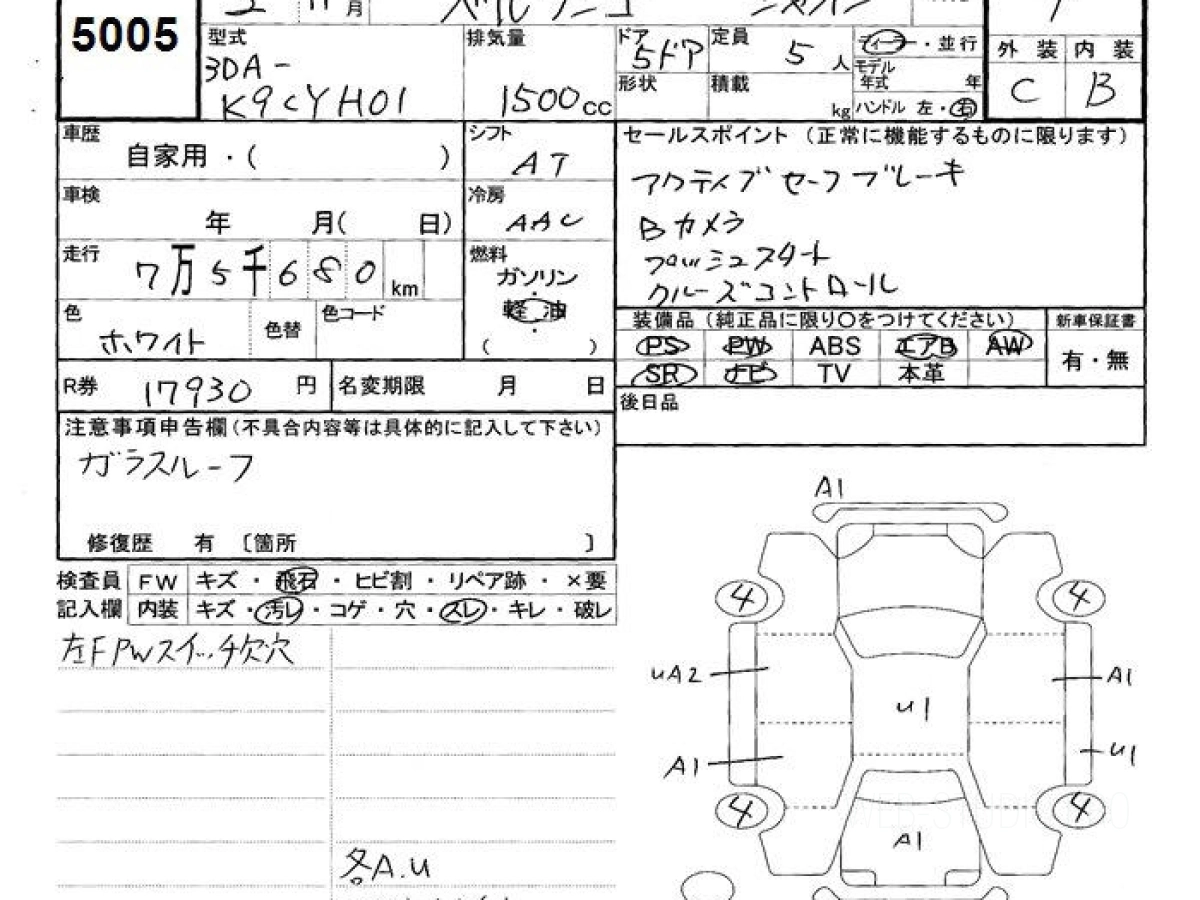 5005
月
型式
3DA-
K9CYH01
排気量
1500 cc
ドア
5ドア
形状
定員
5 人
積載
kg
ディーラー・並行
モデル
年式 年
ハンドル 左・右
外装 内装
C B
車歴
自家用・( )
シフト
AT
車検
年 月( 日)
冷房
AAC
走行
7万5千680 km
燃料
ガソリン
・
軽油
・
( )
色
ホワイト
色替
色コード
R券
17930 円
名変期限 月 日
セールスポイント (正常に機能するものに限ります)
アクティブセーフブレーキ
Bカメラ
プッシュスタート
クルーズコントロール
装備品 (純正品に限り○をつけてください)
新車保証書
PS PW ABS エアB AW
SR ナビ TV 本革
有・無
後日品
注意事項申告欄 (不具合内容等は具体的に記入して下さい)
ガラスルーフ
修復歴 有 〔箇所 〕
検査員 FW キズ・飛石・ヒビ割・リペア跡・×要
記入欄 内装 キズ・汚レ・コゲ・穴・スレ・キレ・破レ
左F PWスイッチ欠穴
各A.U
A1
4 4
uA2 A1
u1
A1 u1
4 4
A1